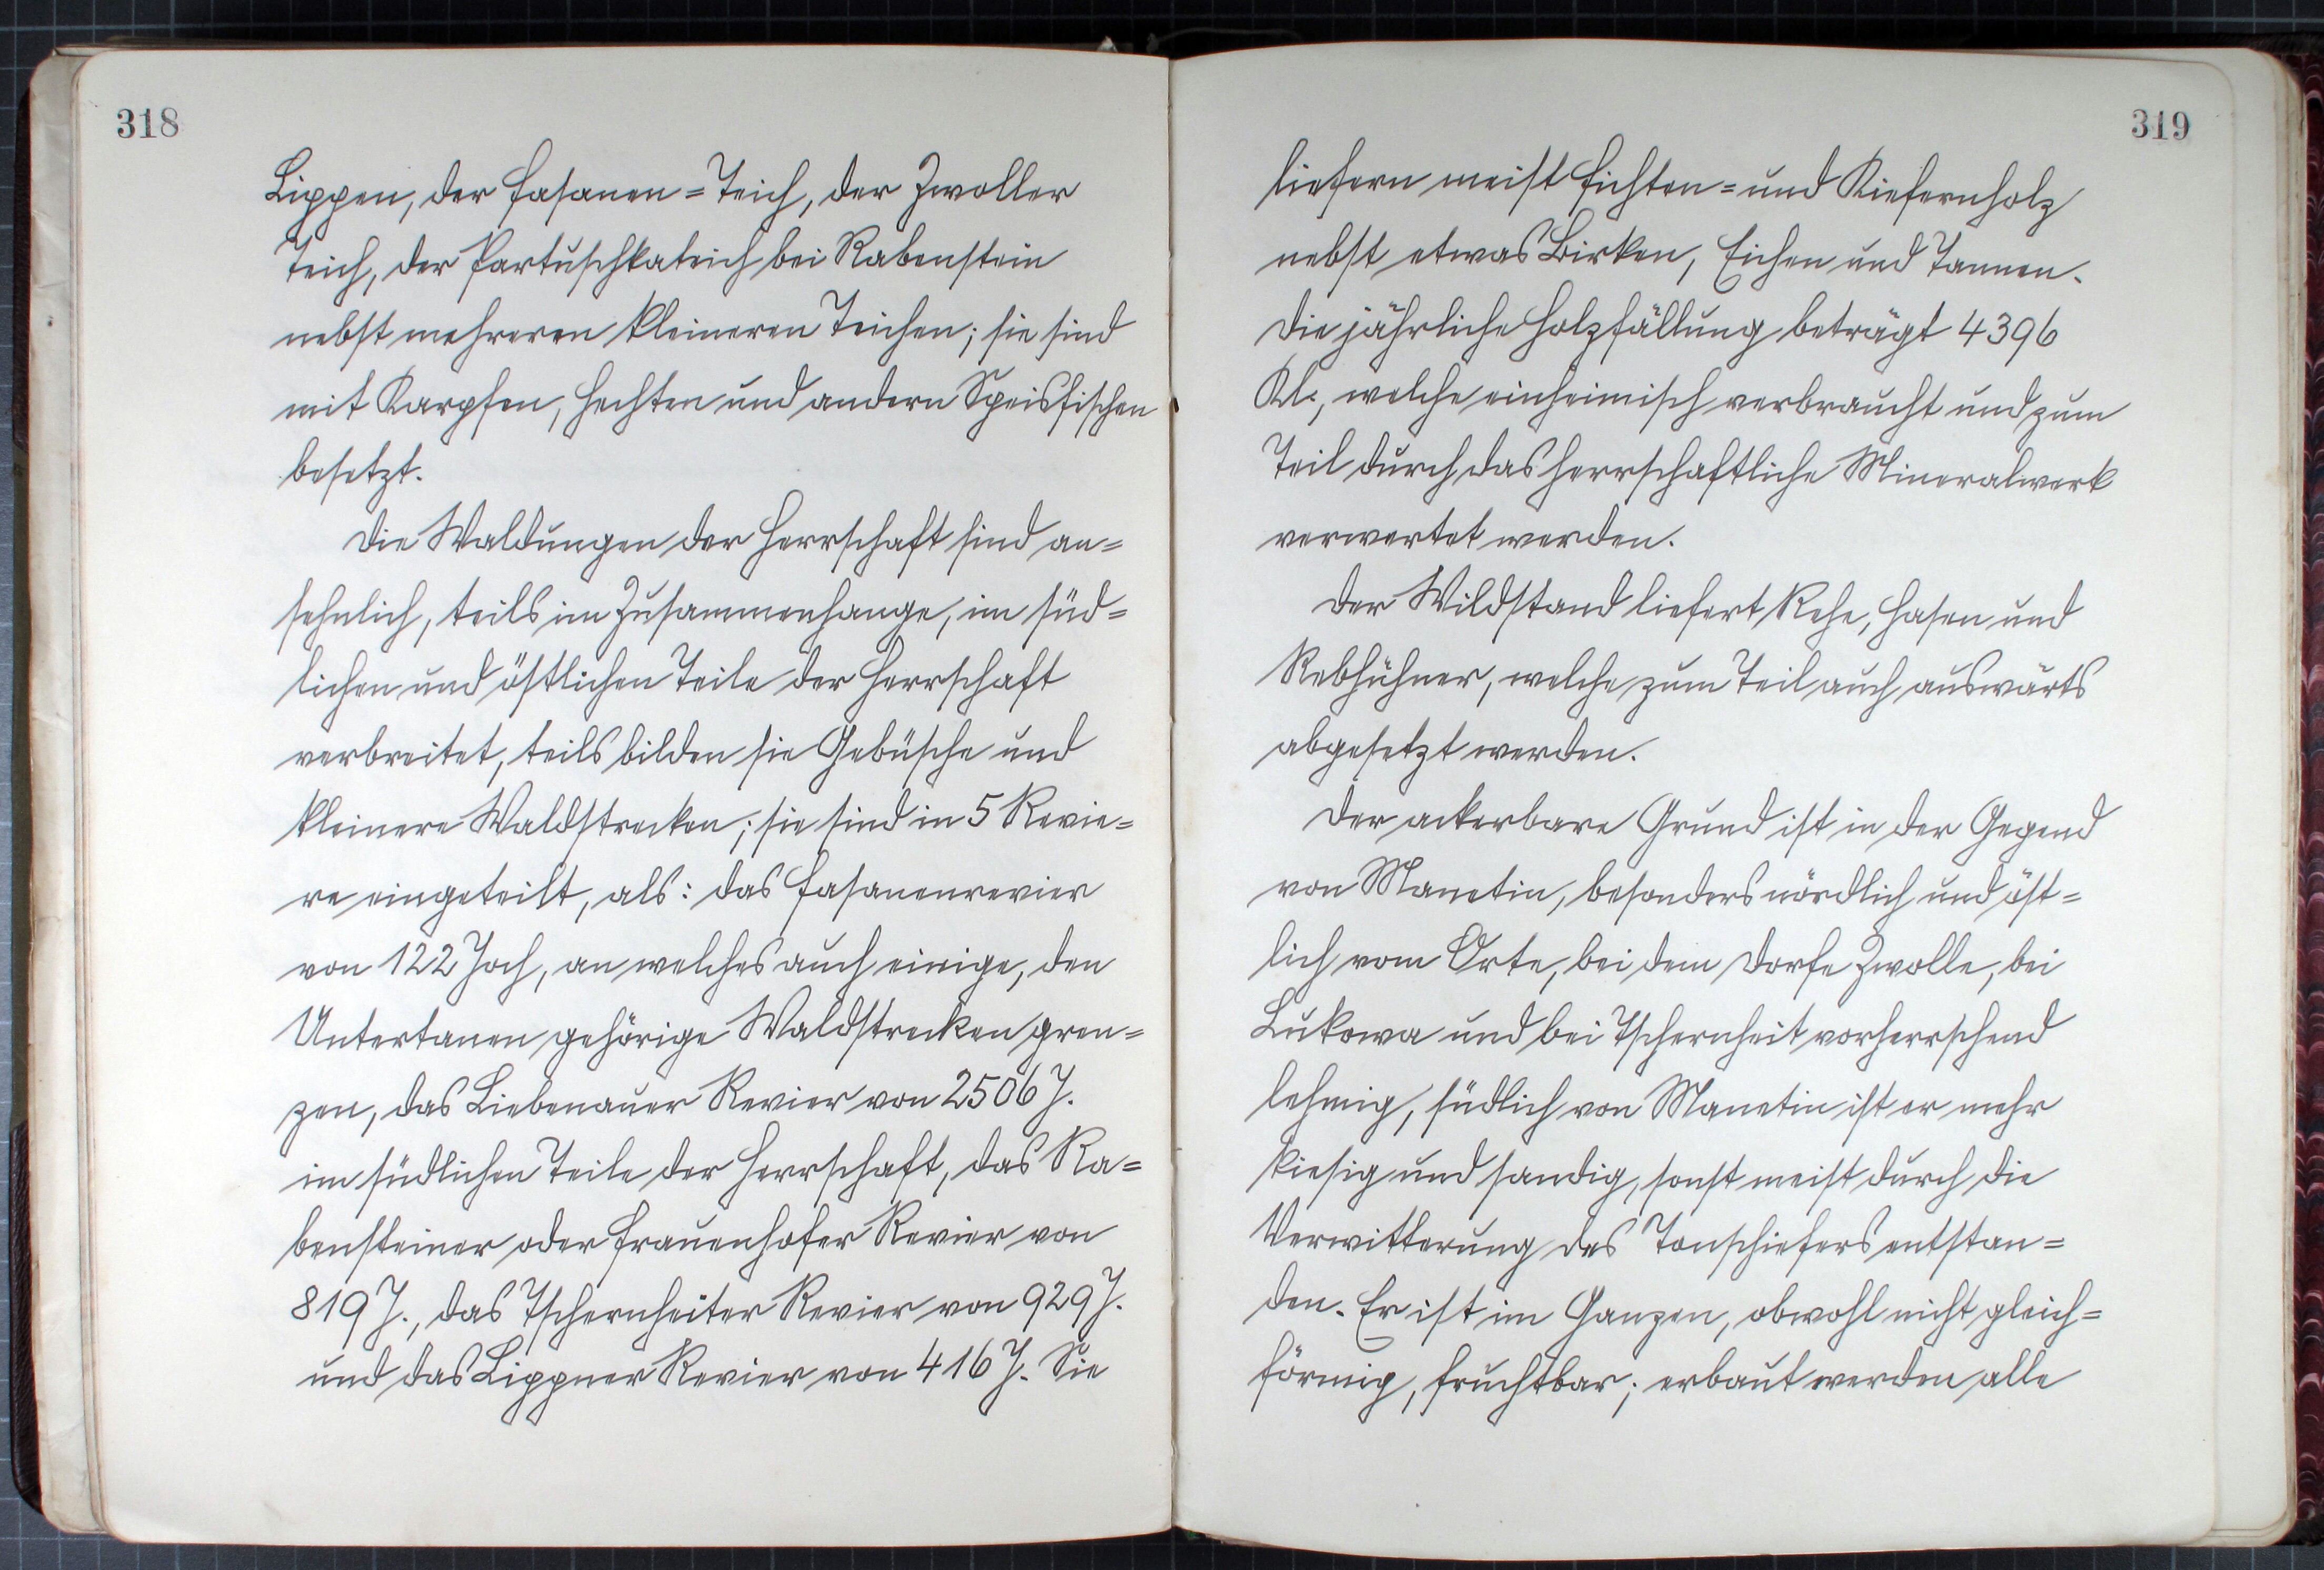 318
Lippen, der Fasanen=Teich, der Zwoller
Teich, der Partuschkateich bei Rabenstein
nebst mehreren kleineren Teichen; sie sind
mit Karpfen, Hechten und andern Speisfischen
besetzt.
Die Waldungen der Herrschaft sind an=
sehnlich, teils im Zusammenhange, im süd=
lichen und östlichen Teile der Herrschaft
verbreitet, teils bilden sie Gebüsche und
kleinere Waldstrecken; sie sind in 5 Revie=
re eingeteilt, als: das Fasanenrevier
von 122 Joch, an welches auch einige, den
Untertanen gehörige Waldstrecken gren=
zen, das Liebenauer Revier von 2506 J.
im südlichen Teile der Herrschaft, das Ra=
bensteiner oder Frauenhofer Revier von
819 J., das Tschernheiter Revier von 929 J.
und das Lippner Revier von 416 J. Sie
319
liefern meist Fichten= und Kiefernholz
nebst etwas Birken, Eichen und Tannen.
Die jährliche Holzfällung beträgt 4396
Kl., welche einheimisch verbraucht und zum
Teil durch das herrschaftliche Mineralwerk
verwertet werden.
Der Wildstand liefert Rehe, Hasen und
Rebhühner, welche zum Teil auch auswärts
abgesetzt werden.
Der ackerbare Grund ist in der Gegend
von Manetin, besonders nördlich und öst=
lich vom Orte, bei dem Dorfe Zwolle, bei
Lukowa und bei Tschernheit vorherrschend
lehmig, südlich von Manetin ist er mehr
kiesig und sandig, sonst meist durch die
Verwitterung des Tonschiefers entstan=
den. Er ist im Ganzen, obwohl nicht gleich=
förmig, fruchtbar; erbaut werden alle